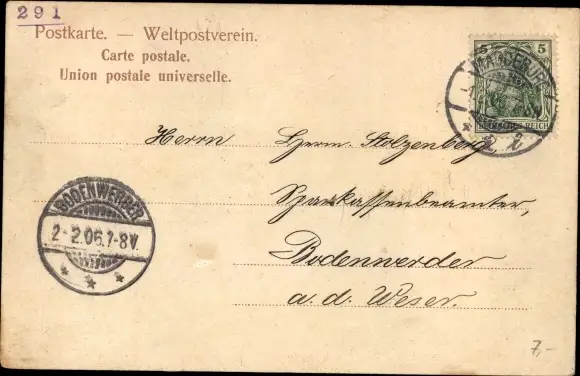 291
Postkarte. — Weltpostverein.
Carte postale.
Union postale universelle.
5 5
MAGDEBURG
DEUTSCHES REICH
Herrn Herm. Stolzenberg
Sparkassenbeamter,
Bodenwerder
a. d. Weser.
BODENWERDER
2-2.06.7-8V.
7,-